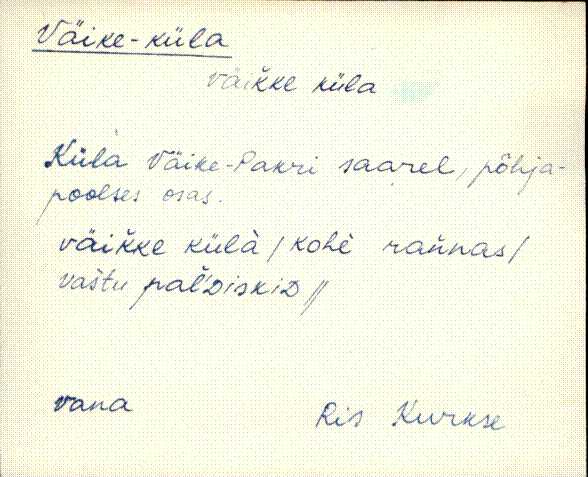 Väike-küla
väikke küla
Küla Väike-Pakri saarel, põhja-
poolses osas.
väikke külà / kohè rannas /
vaštu pal'diskiD //
vana
Ris Kurkse